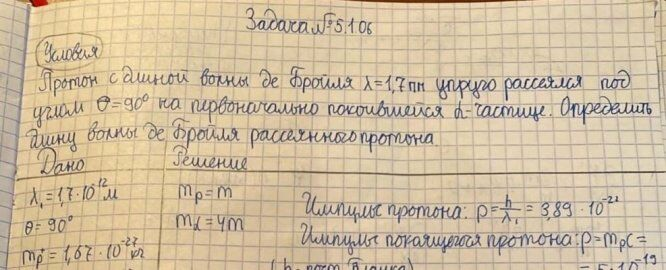 Задача №5.106
Условия
Протон с длиной волны де Бройля λ=1,7пм упруго рассеялся под
углом θ=90° на первоначально покоившейся α-частице. Определить
длину волны де Бройля рассеянного протона.
Дано Решение
λ₁=1,7·10⁻¹²м mp=m Импульс протона: p=h/λ₁=3,89·10⁻²²
θ=90° mα=4m Импульс покоящегося протона: p=mpc=
mp=1,67·10⁻²⁷кг =5·10⁻¹⁹